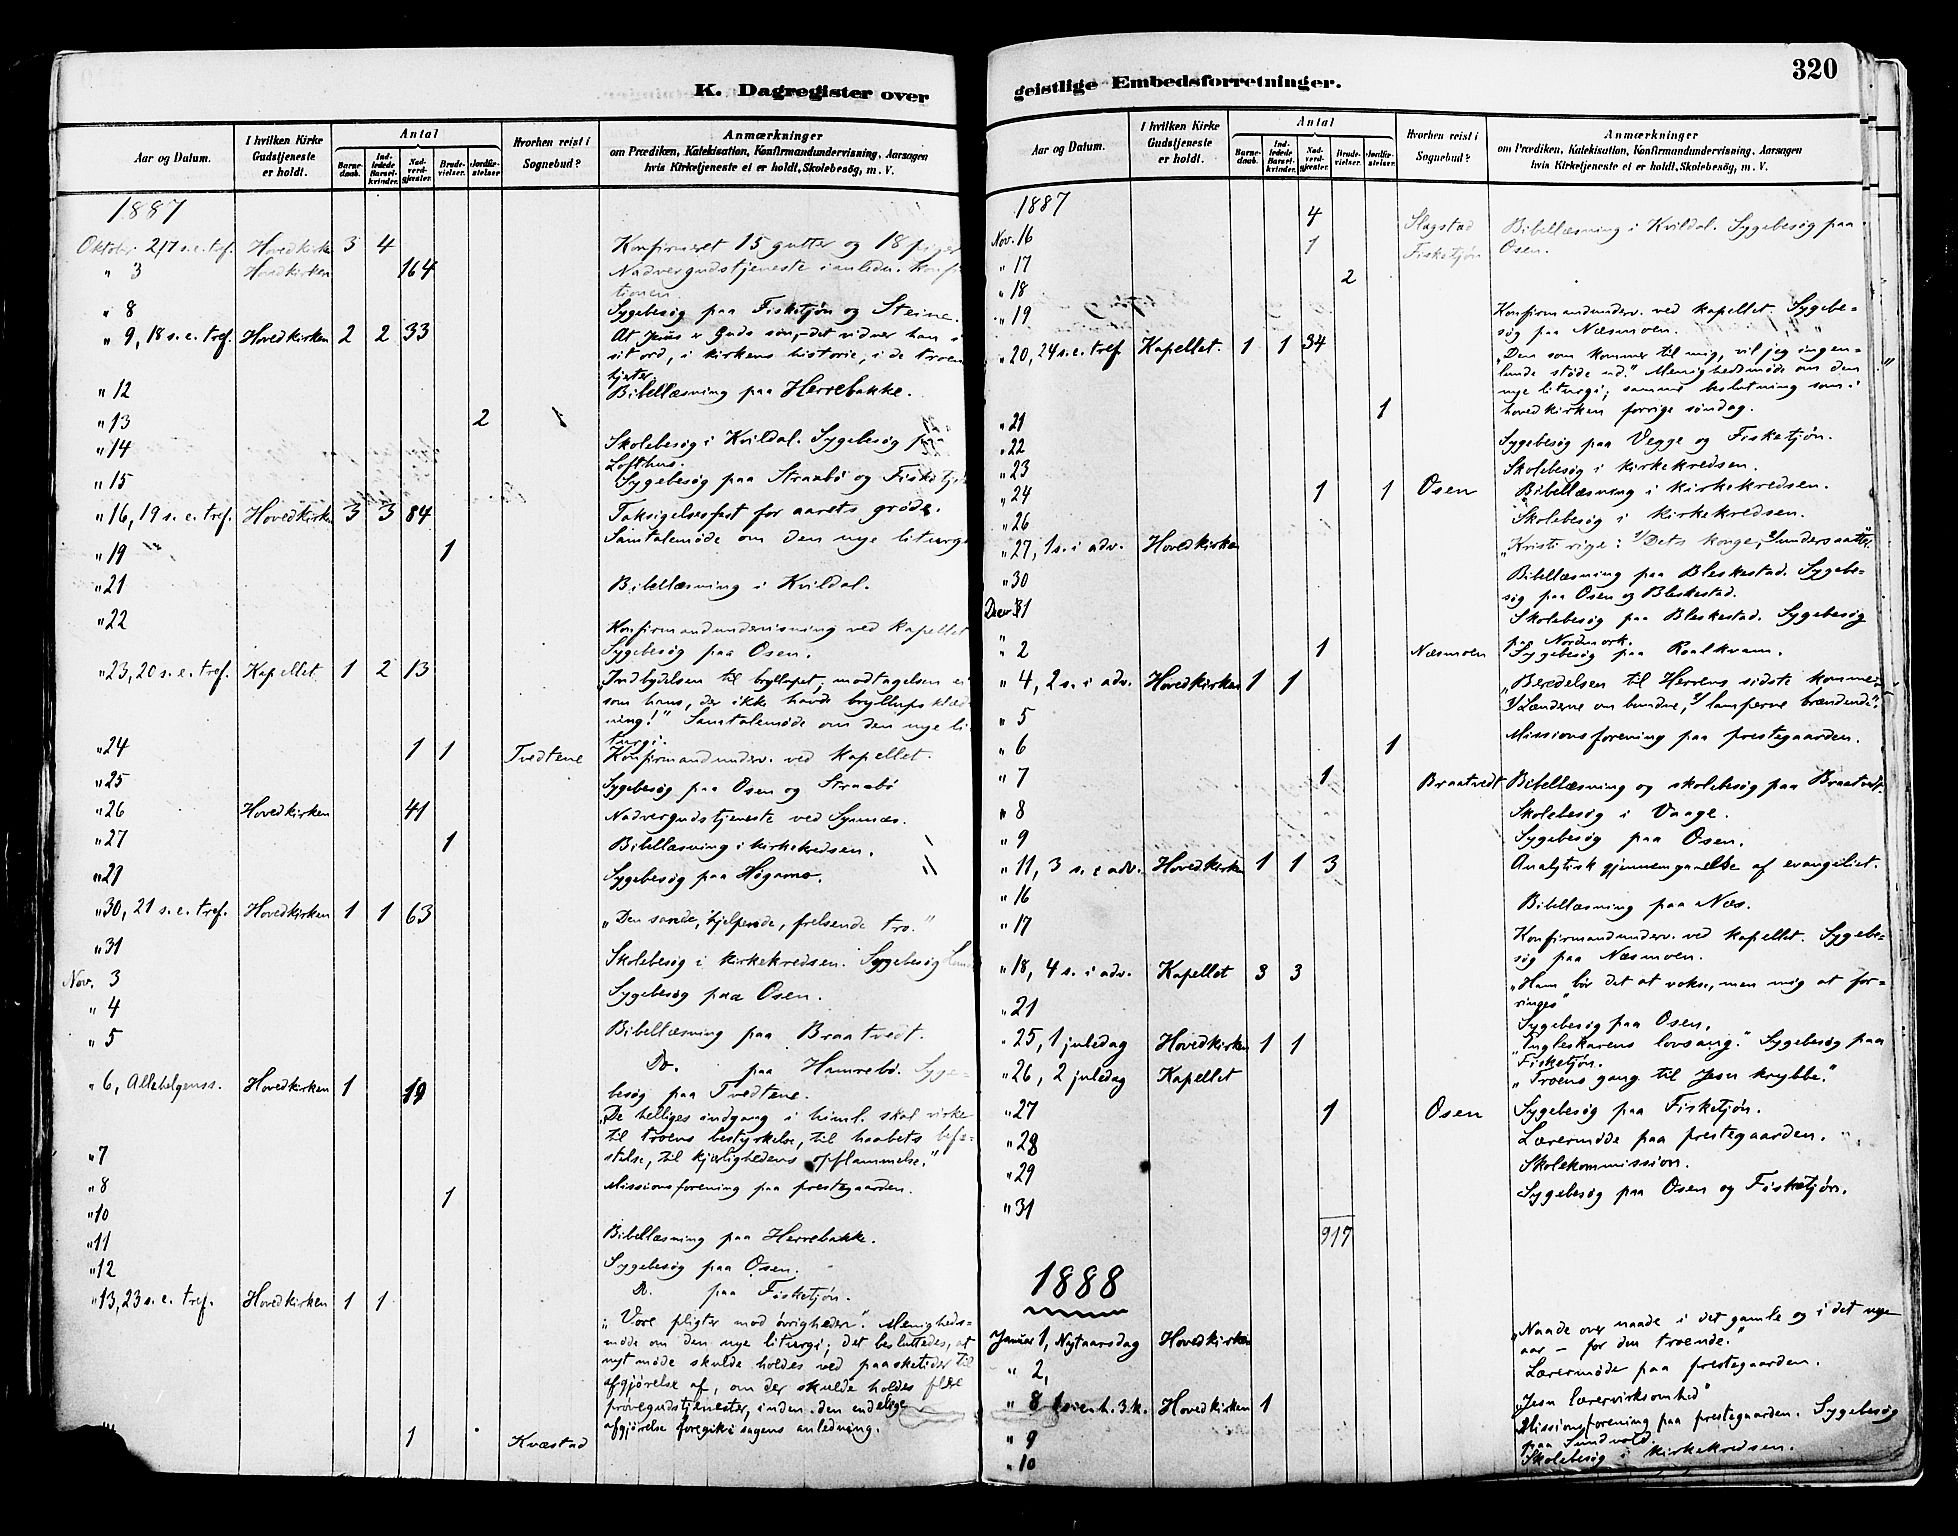 K. Dagregister over
Aar og Datum.
I hvilken Kirke Gudstjeneste er holdt.
Antal
Barnedaab.
Indledede Barselkvinder.
Nadverdgjester.
Brudevielser.
Jordfæstelser
Hvorhen reist i Sognebud?
Anmærkninger
om Prædiken, Katekisation, Konfirmandundervisning, Aarsagen
hvis Kirketjeneste ei er holdt, Skolebesøg, m. V.
1887
Oktober 2, 17 s. e. tref. Hovedkirken 3 4 Konfirmeret 15 gutter og 18 piger
" 3 Hovedkirken 164 Nadvergudstjeneste i anledn. konfir
tionen.
" 8 Sygebesøg paa Fisketjøn og Steine.
" 9, 18 s. e. tref. Hovedkirken 2 2 33 At Jesus er Guds søn, det vidner han i
sit ord, i kirkens historie, i de troen
hjerter.
" 12 Bibellæsning paa Herrebakke.
" 13 2 1
" 14 Skolebesøg i Kvildal. Sygebesøg paa
Lofthus.
" 15 Sygebesøg paa Straabø og Fisketjø
" 16, 19 s. e. tref. Hovedkirken 3 3 84 Taksigelsesfest for aarets grøde.
Samtalemøde om den nye liturgi
" 19 1
" 21 Bibellæsning i Kvildal.
" 22 Konfirmandundervisning ved kapellet
Sygebesøg paa Osen.
" 23, 20 s. e. tref. Kapellet 1 2 13 "Indbydelsen til bryllupet; modtagelsen ei
som hans, der ikke havde bryllupsklæd
ning!" Samtalemøde om den nye li
turgi.
" 24 1 1 Tvedtene Konfirmandunderv. ved kapellet.
" 25 Sygebesøg paa Osen og Straabø
" 26 Hovedkirken 41 Nadvergudstjeneste ved Synnæs.
" 27 1 Bibellæsning i kirkekredsen.
" 29 Sygebesøg paa Høgamo.
" 30, 21 s. e. tref. Hovedkirken 1 1 63 "Den sande, hjelpende, frelsende tro."
" 31 Skolebesøg i kirkekredsen. Sygebesøg
Nov. 3 Sygebesøg paa Osen.
" 4
" 5 Bibellæsning paa Braatvedt.
Do. paa Hamrebø. Syge-
" 6, Allehelgenss. Hovedkirken 1 19 besøg paa Tvedtene.
"De helliges indgang i himl. skal virke
til troens bestyrkelse, til haabets befæ-
" 7 stelse, til kjærlighedens opflammelse."
" 8 1 Missionsforening paa prestegaarden.
" 10
" 11 Bibellæsning paa Herrebakke.
" 12 Sygebesøg paa Osen.
" 13, 23 s. e. tref. Hovedkirken 1 1 Do. paa Fisketjøn.
"Vore pligter mod øvrigheden". Menigheds-
møde om den nye liturgi; det besluttedes, at
nyt møde skulde holdes ved paasketider til
afgjørelse af, om der skulde holdes flere
prøvegudstjenester, inden den endelige
1 Kvæstad afgjørelse foregik i sagens anledning.
geistlige Embedsforretninger.
320
Aar og Datum.
I hvilken Kirke Gudstjeneste er holdt.
Antal
Barnedaab.
Indledede Barselkvinder.
Nadverdgjester.
Brudevielser.
Jordfæstelser
Hvorhen reist i Sognebud?
Anmærkninger
om Prædiken, Katekisation, Konfirmandundervisning, Aarsagen
hvis Kirketjeneste ei er holdt, Skolebesøg, m. V.
1887
Nov. 16 4 Slagstad Bibellæsning i Kvildal. Sygebesøg paa
" 17 1 Fisketjøn Osen.
" 18 2
" 19 Konfirmandunderv. ved kapellet. Sygebe-
søg paa Næsmoen.
" 20, 24 s. e. tref Kapellet. 1 1 34 "Den som kommer til mig, vil jeg ingen-
lunde støde ud." Menighedsmøde om den
nye liturgi; samme beslutning som i
" 21 1 hovedkirken forrige søndag.
" 22 Sygebesøg paa Vegge og Fisketjøn.
" 23 Skolebesøg i kirkekredsen.
" 24 1 1 Osen Bibellæsning i kirkekredsen.
" 26 Skolebesøg i kirkekredsen.
" 27, 1 s. i adv. Hovedkirken "Kristi rige: 1/ Dets konge, 2/ undersaatter
" 30 Bibellæsning paa Bleskestad. Sygebe-
søg paa Osen og Bleskestad.
Decem. 1 Skolebesøg paa Bleskestad. Sygebesøg
paa Nordmork.
" 2 1 Næsmoen Sygebesøg paa Roalkvam.
" 4, 2 s. i adv. Hovedkirken 1 1 "Beredelsen til Herrens sidste komme
" 5 1/ Lænderne om bundne, 2/ lamperne brændende".
" 6 1 Missionsforening paa prestegaarden.
" 7 1 Braatvedt Bibellæsning og skolebesøg paa Braatvedt.
" 8 Skolebesøg i Vaage.
" 9 Sygebesøg paa Osen.
" 11, 3 s. i adv. Hovedkirken 1 1 3 Analytisk gjennemgaaelse af evangeliet.
" 16 Bibellæsning paa Næs.
" 17 Konfirmandunderv. ved kapellet. Sygebe-
søg paa Næsmoen.
" 18, 4 s. i adv. Kapellet 3 3 "Ham bør det at vokse, men mig at for-
ringes"
" 21 Sygebesøg paa Osen.
" 25, 1 juledag Hovedkirken 1 1 "Engleskarens lovsang." Sygebesøg paa
Fisketjøn.
" 26, 2 juledag Kapellet "Troens gang til Jesu krybbe."
" 27 1 Osen Sygebesøg paa Fisketjøn.
" 28 Lærermøde paa prestegaarden.
" 29 Skolekommission.
" 31 Sygebesøg paa Osen og Fisketjøn.
917
1888
Januar 1, Nytaarsdag Hovedkirken "Naade over naade i det gamle og i det nye
aar – for den troende."
" 2, Lærermøde paa prestegaarden.
" 8 1 s. e. h. 3. k. Hovedkirken 1 "Jesu lærervirksomhed"
" 9 Missionsforening paa prestegaarden. Sygebesøg
paa Sundvold.
" 10 Skolebesøg i kirkekredsen.